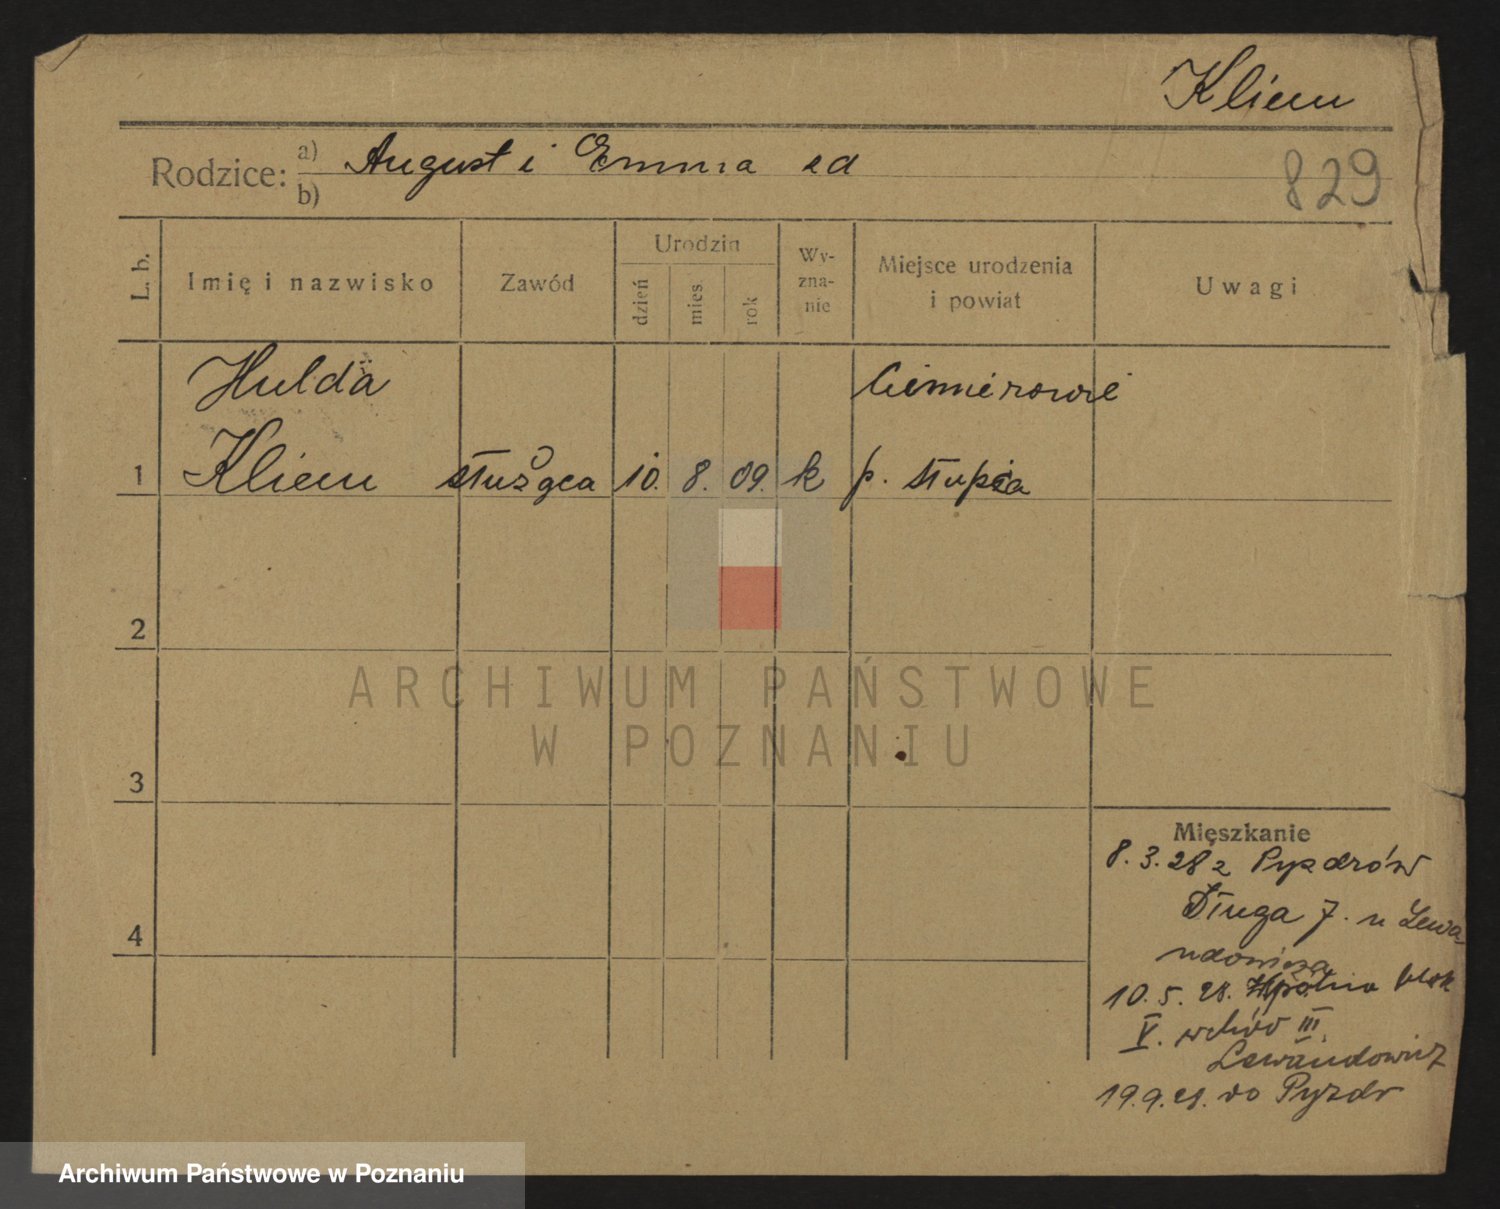 Kliem
Rodzice: a) August i Emma zd
b)
829
L. b.
Imię i nazwisko
Zawód
Urodzin
dzień
mies.
rok
Wy-
zna-
nie
Miejsce urodzenia
i powiat
Uwagi
Hulda
Ciemierowie
1 Kliem służąca 10. 8. 09. k p. Słupca
2
3
4
Mieszkanie
8.3.28 z Pyzdrów
Długa 7. u Lewa-
ndowicza
10.5.28. Wspólna blok
V. wchód III.
Lewandowicz
19.9.28. do Pyzdr
ARCHIWUM PAŃSTWOWE
W POZNANIU
Archiwum Państwowe w Poznaniu